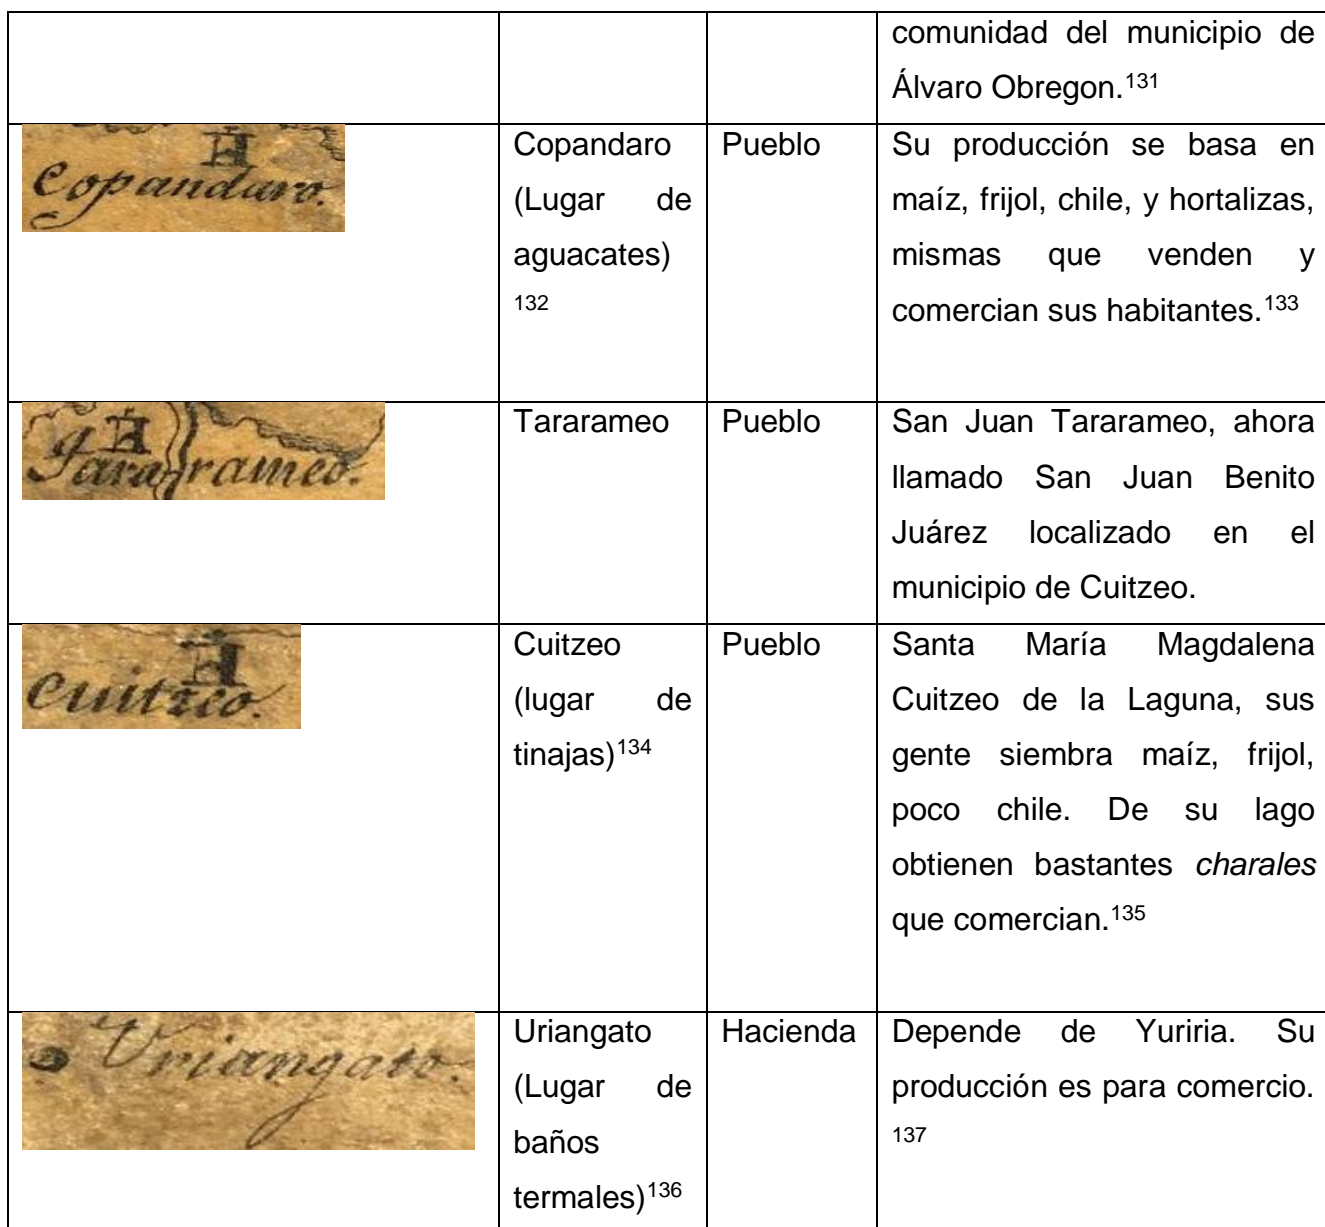 comunidad del municipio de
Álvaro Obregon.131
Copandaro.
Copandaro
(Lugar de
aguacates)
132
Pueblo
Su producción se basa en
maíz, frijol, chile, y hortalizas,
mismas que venden y
comercian sus habitantes.133
Tararameo.
Tararameo
Pueblo
San Juan Tararameo, ahora
llamado San Juan Benito
Juárez localizado en el
municipio de Cuitzeo.
Cuitzeo.
Cuitzeo
(lugar de
tinajas)134
Pueblo
Santa María Magdalena
Cuitzeo de la Laguna, sus
gente siembra maíz, frijol,
poco chile. De su lago
obtienen bastantes charales
que comercian.135
Uriangato.
Uriangato
(Lugar de
baños
termales)136
Hacienda
Depende de Yuriria. Su
producción es para comercio.
137